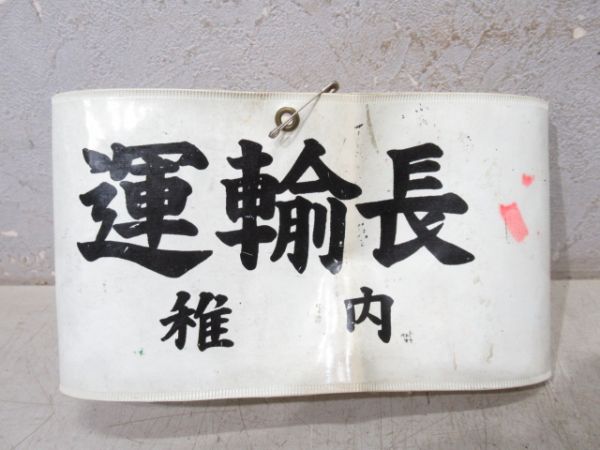 運輸長
稚内